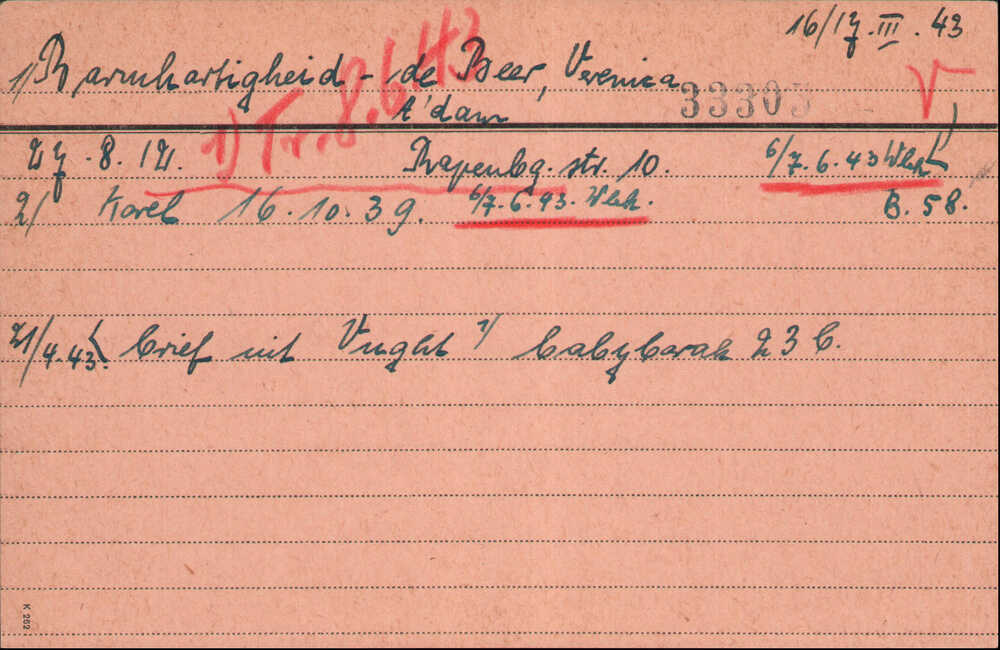 16/17.III.43
1) Barmhartigheid - de Beer, Veronica
A'dam 33305
V
1) Tr. 8.6.43
27.8.12. Rapenbg. str. 10. 6/7.6.43 Wbk
2/ Karel 16.10.39. 6/7.6.43. Wbk. B. 58.
21/4.43. brief uit Vught 1/ babybarak 23 B.
K 262